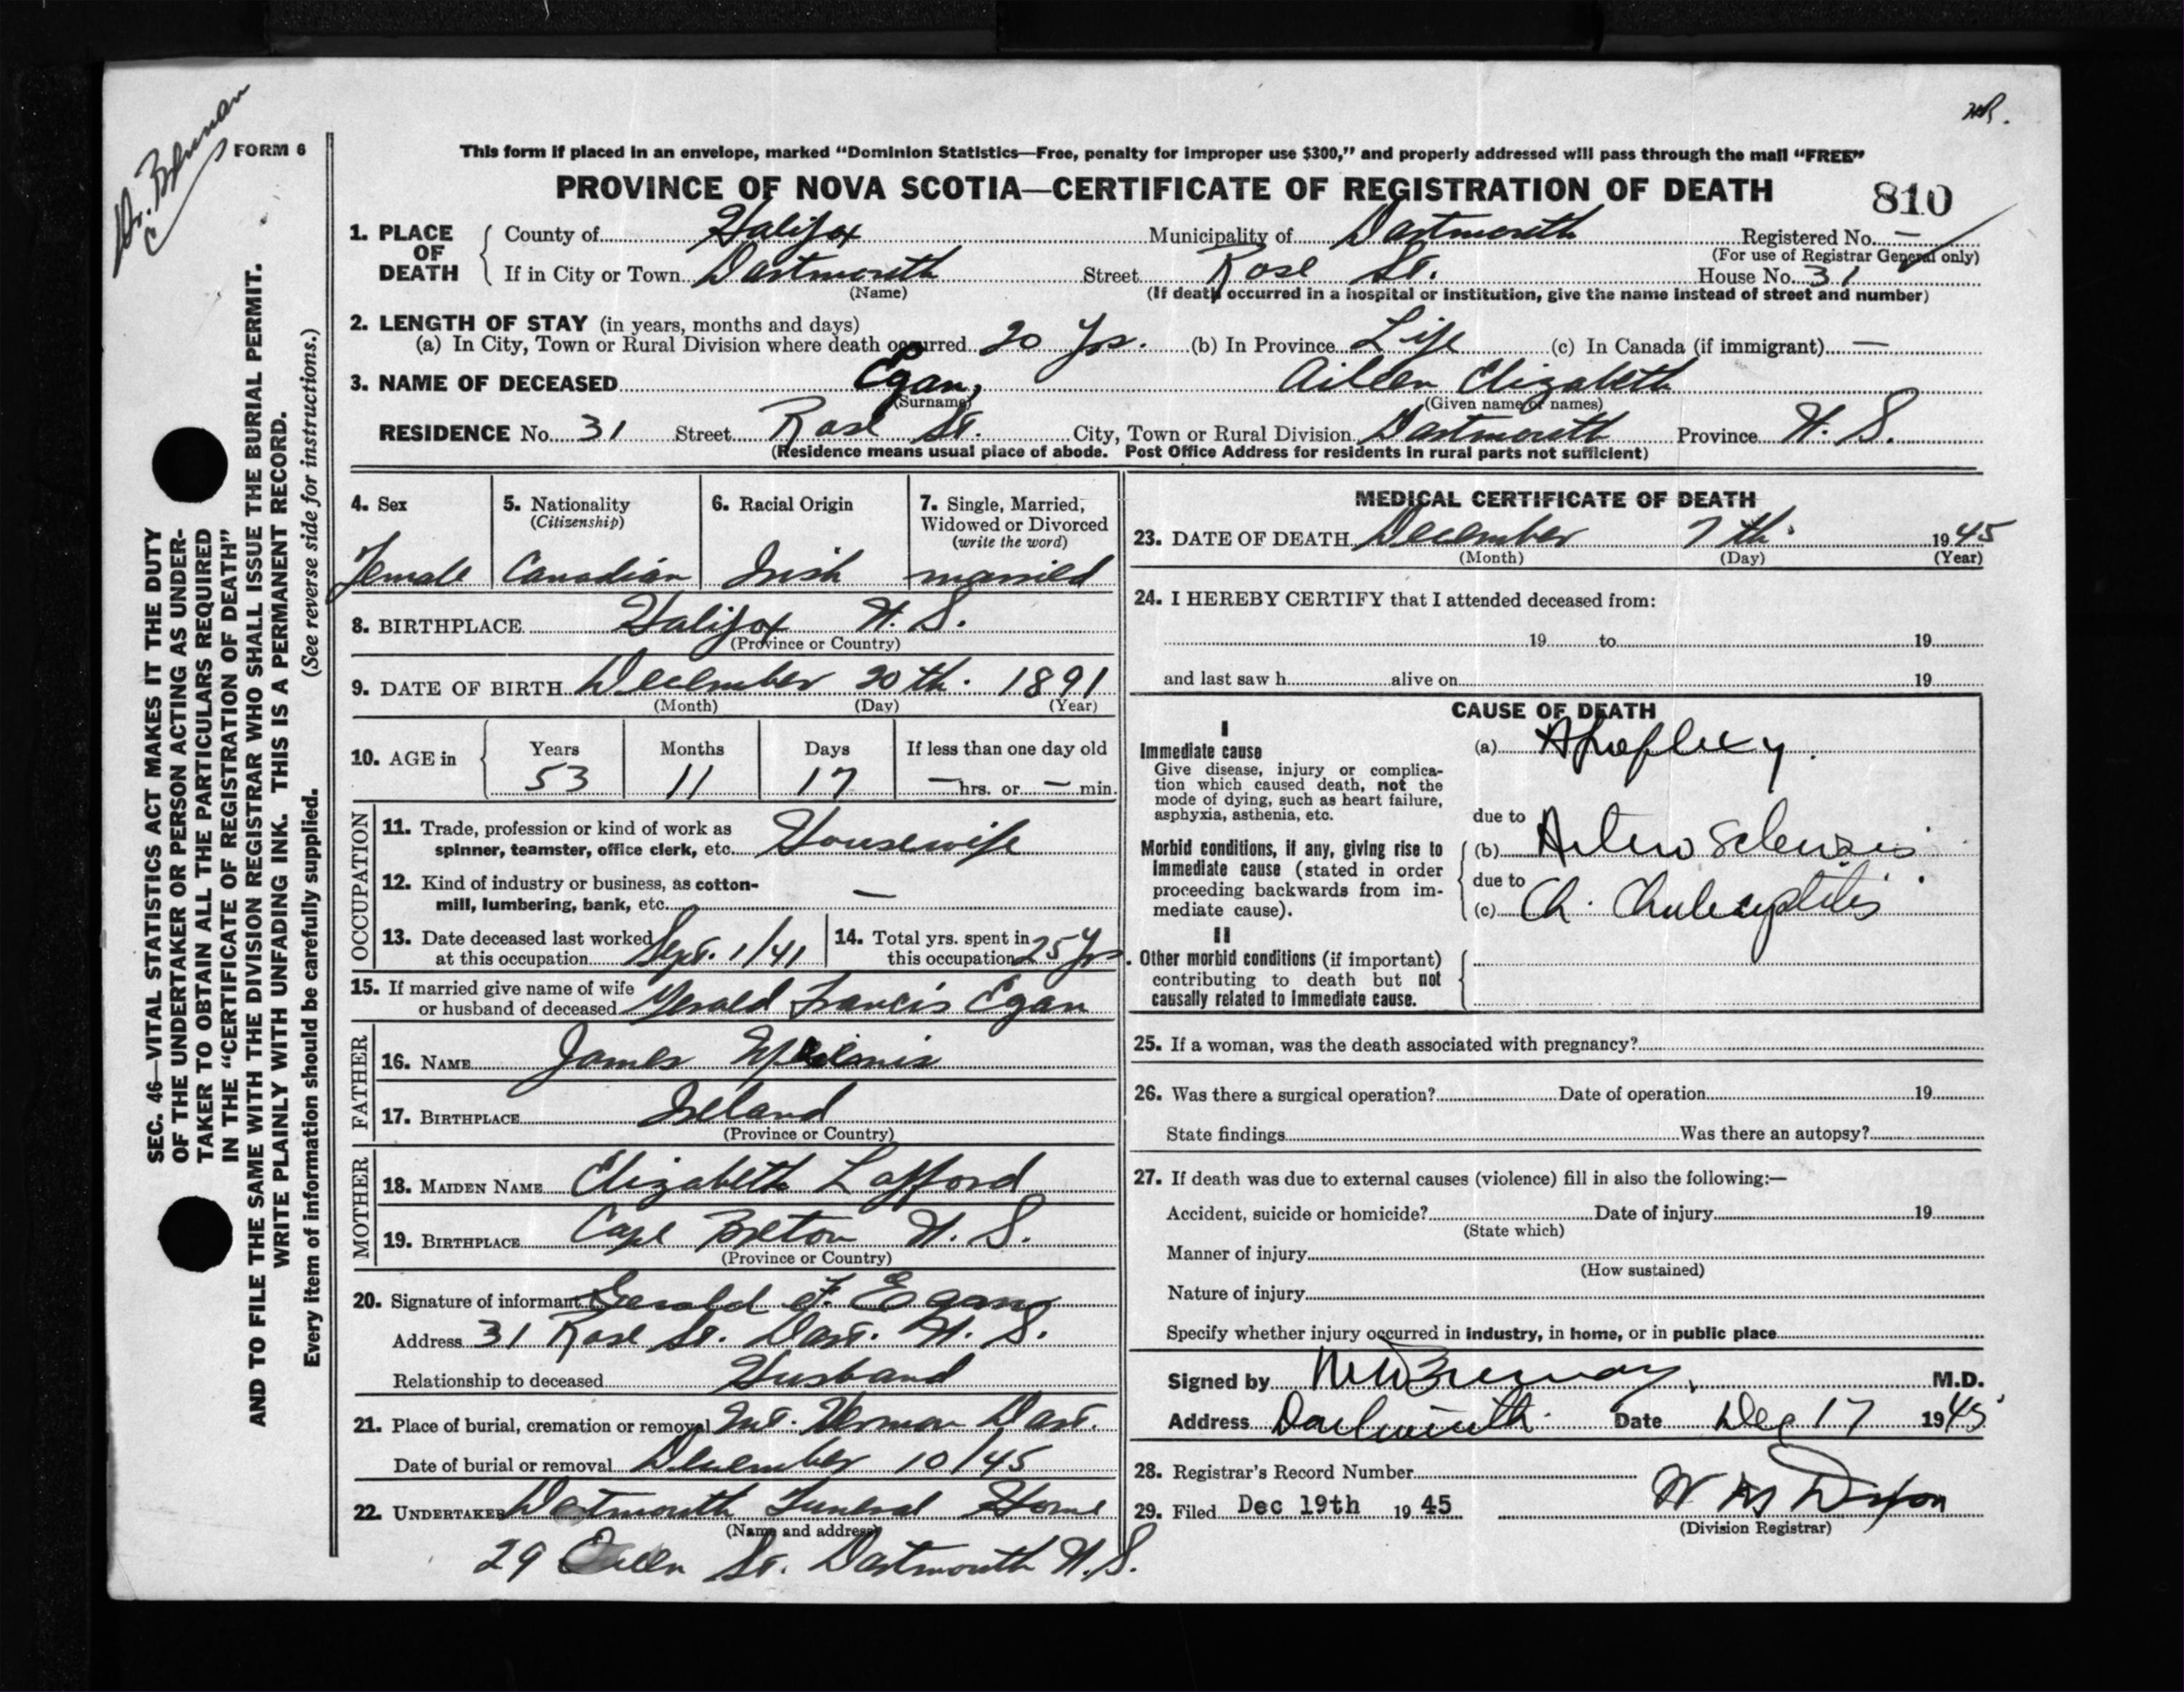 Dr. Brennan
FORM 6
This form if placed in an envelope, marked "Dominion Statistics—Free, penalty for improper use $300," and properly addressed will pass through the mail "FREE"
PROVINCE OF NOVA SCOTIA—CERTIFICATE OF REGISTRATION OF DEATH
810
1. PLACE OF DEATH
County of Halifax Municipality of Dartmouth Registered No. —
(For use of Registrar General only)
If in City or Town Dartmouth Street Rose St. House No. 31
(Name) (If death occurred in a hospital or institution, give the name instead of street and number)
2. LENGTH OF STAY (in years, months and days)
(a) In City, Town or Rural Division where death occurred 20 Yrs. (b) In Province Life (c) In Canada (if immigrant) —
3. NAME OF DECEASED Egan, Aileen Elizabeth
(Surname) (Given name or names)
RESIDENCE No. 31 Street Rose St. City, Town or Rural Division Dartmouth Province N. S.
(Residence means usual place of abode. Post Office Address for residents in rural parts not sufficient)
SEC. 46—VITAL STATISTICS ACT MAKES IT THE DUTY
OF THE UNDERTAKER OR PERSON ACTING AS UNDER-
TAKER TO OBTAIN ALL THE PARTICULARS REQUIRED
IN THE "CERTIFICATE OF REGISTRATION OF DEATH"
AND TO FILE THE SAME WITH THE DIVISION REGISTRAR WHO SHALL ISSUE THE BURIAL PERMIT.
WRITE PLAINLY WITH UNFADING INK. THIS IS A PERMANENT RECORD.
Every item of information should be carefully supplied. (See reverse side for instructions.)
4. Sex 5. Nationality 6. Racial Origin 7. Single, Married,
(Citizenship) Widowed or Divorced
(write the word)
Female Canadian Irish married
8. BIRTHPLACE Halifax N. S.
(Province or Country)
9. DATE OF BIRTH December 20th. 1891
(Month) (Day) (Year)
10. AGE in Years Months Days If less than one day old
53 11 17 — hrs. or — min.
OCCUPATION
11. Trade, profession or kind of work as
spinner, teamster, office clerk, etc. Housewife
12. Kind of industry or business, as cotton-
mill, lumbering, bank, etc. —
13. Date deceased last worked
at this occupation Sept. 1/41
14. Total yrs. spent in
this occupation 25 Yrs.
15. If married give name of wife
or husband of deceased Gerald Francis Egan
FATHER
16. NAME James
17. BIRTHPLACE Ireland
(Province or Country)
MOTHER
18. MAIDEN NAME Elizabeth Lafford
19. BIRTHPLACE Cape Breton N. S.
(Province or Country)
20. Signature of informant Gerald F. Egan
Address 31 Rose St. Dart. N. S.
Relationship to deceased Husband
21. Place of burial, cremation or removal Mt. Herman Dart.
Date of burial or removal December 10/45
22. UNDERTAKER Dartmouth Funeral Home
(Name and address)
29 Queen St. Dartmouth N.S.
MEDICAL CERTIFICATE OF DEATH
23. DATE OF DEATH December 7th. 1945
(Month) (Day) (Year)
24. I HEREBY CERTIFY that I attended deceased from:
19 to 19
and last saw h alive on 19
CAUSE OF DEATH
I
Immediate cause
Give disease, injury or complica-
tion which caused death, not the
mode of dying, such as heart failure,
asphyxia, asthenia, etc.
(a) Apoplexy.
due to
Morbid conditions, if any, giving rise to
immediate cause (stated in order
proceeding backwards from im-
mediate cause).
(b) Arterio Sclerosis
due to
(c) Ch. Cholecystitis
II
Other morbid conditions (if important)
contributing to death but not
causally related to immediate cause.
25. If a woman, was the death associated with pregnancy?
26. Was there a surgical operation? Date of operation 19
State findings Was there an autopsy?
27. If death was due to external causes (violence) fill in also the following:—
Accident, suicide or homicide? Date of injury 19
(State which)
Manner of injury
(How sustained)
Nature of injury
Specify whether injury occurred in industry, in home, or in public place
Signed by Brennan M.D.
Address Dartmouth Date Dec 17 1945
28. Registrar's Record Number
29. Filed Dec 19th 1945 Dixon
(Division Registrar)